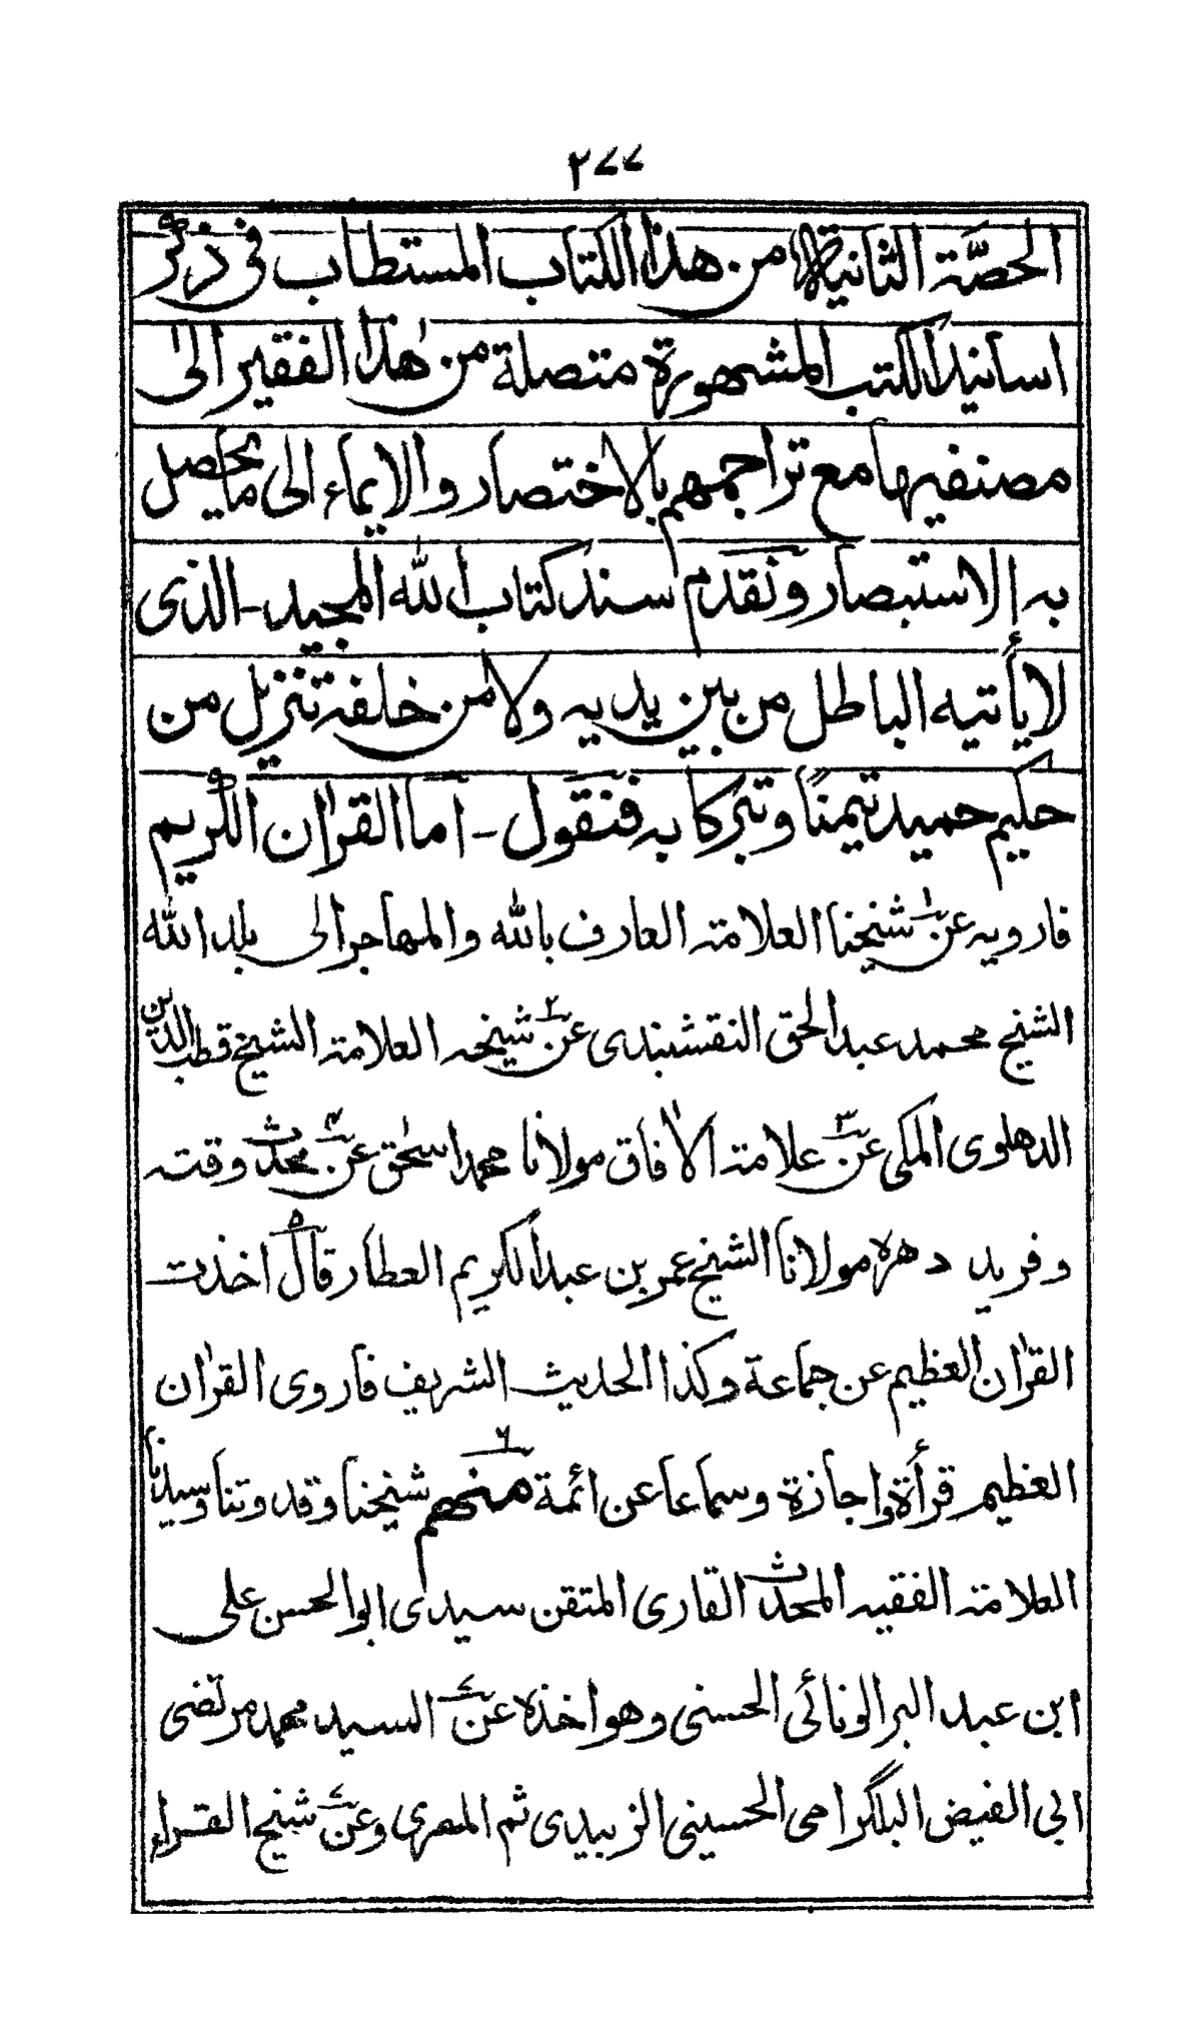 ٢٧٧
الحصّة الثانية من هذا الكتاب المستطاب فى ذكر
اسانيد الكتب المشهورة متصلة من هٰذا الفقير الىٰ
مصنفيها مع تراجمهم بالاختصار والايماء الى ما يحصل
به الاستبصار ونقدم سند كتاب الله المجيد - الذى
لا يأتيه الباطل من بين يديه ولا من خلفه تنزيل من
حكيم حميد تيمنًا وتبركا به فنقول - اما القرآن الكريم
فارويه عن١ شيخنا العلامة العارف بالله والمهاجر الى بلد الله
الشيخ محمد عبد الحق النقشبندى عن٢ شيخه العلامة الشيخ قطب الدين
الدهلوى المكى عن٣ علامة الآفاق مولانا محمد اسحٰق عن٤ محدث وقته
وفريد دهره مولانا الشيخ عمر بن عبد الكريم العطار قال٥ اخذت
القرآن العظيم عن جماعة وكذا الحديث الشريف فاروى القرآن
العظيم قرأة واجازة وسماعا عن ائمة منهم٦ شيخنا وقدوتنا وسيدنا
العلامة الفقيه المحدث القارى المتقن سيدى ابو الحسن على
ابن عبد البر الونائى الحسنى وهو اخذه عن٧ السيد محمد مرتضى
ابى الفيض البلگرامى الحسينى الزبيدى ثم المصرى وعن٧ شيخ القراء